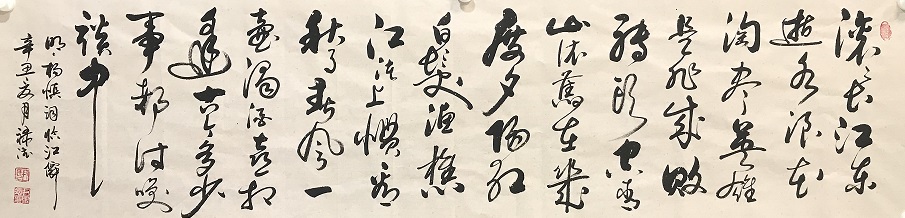 滚々长江东
逝水浪花
淘尽英雄
是非成败
转头空青
山依舊在幾
度夕陽红
白髮渔樵
江渚上惯看
秋月春风一
壶浊酒喜相
逢古今多少
事都付笑
谈中
明杨慎词临江仙
辛丑夏月